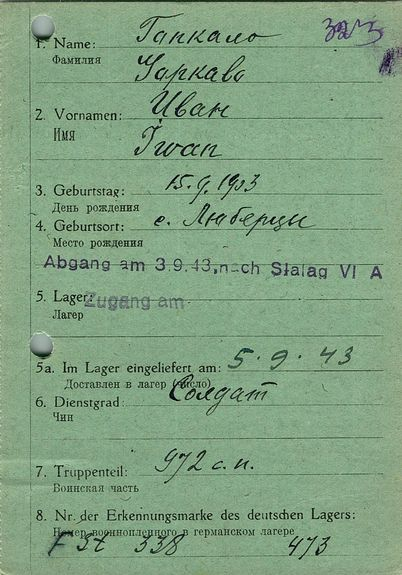 1. Name: Гапкало
Фамилия
2. Vornamen: Иван
Имя Iwan
3. Geburtstag: 15.9.1903
День рождения
4. Geburtsort: с. Люберцы
Место рождения
Abgang am 3.9.43, nach Stalag VI A
5. Lager: Zugang am
Лагер
5a. Im Lager eingeliefert am: 5.9.43
Доставлен в лагер (число)
6. Dienstgrad: Солдат
Чин
7. Truppenteil: 972 с.п.
Воинская часть
8. Nr. der Erkennungsmarke des deutschen Lagers:
Номер военнопленного в германском лагере
St 338 473